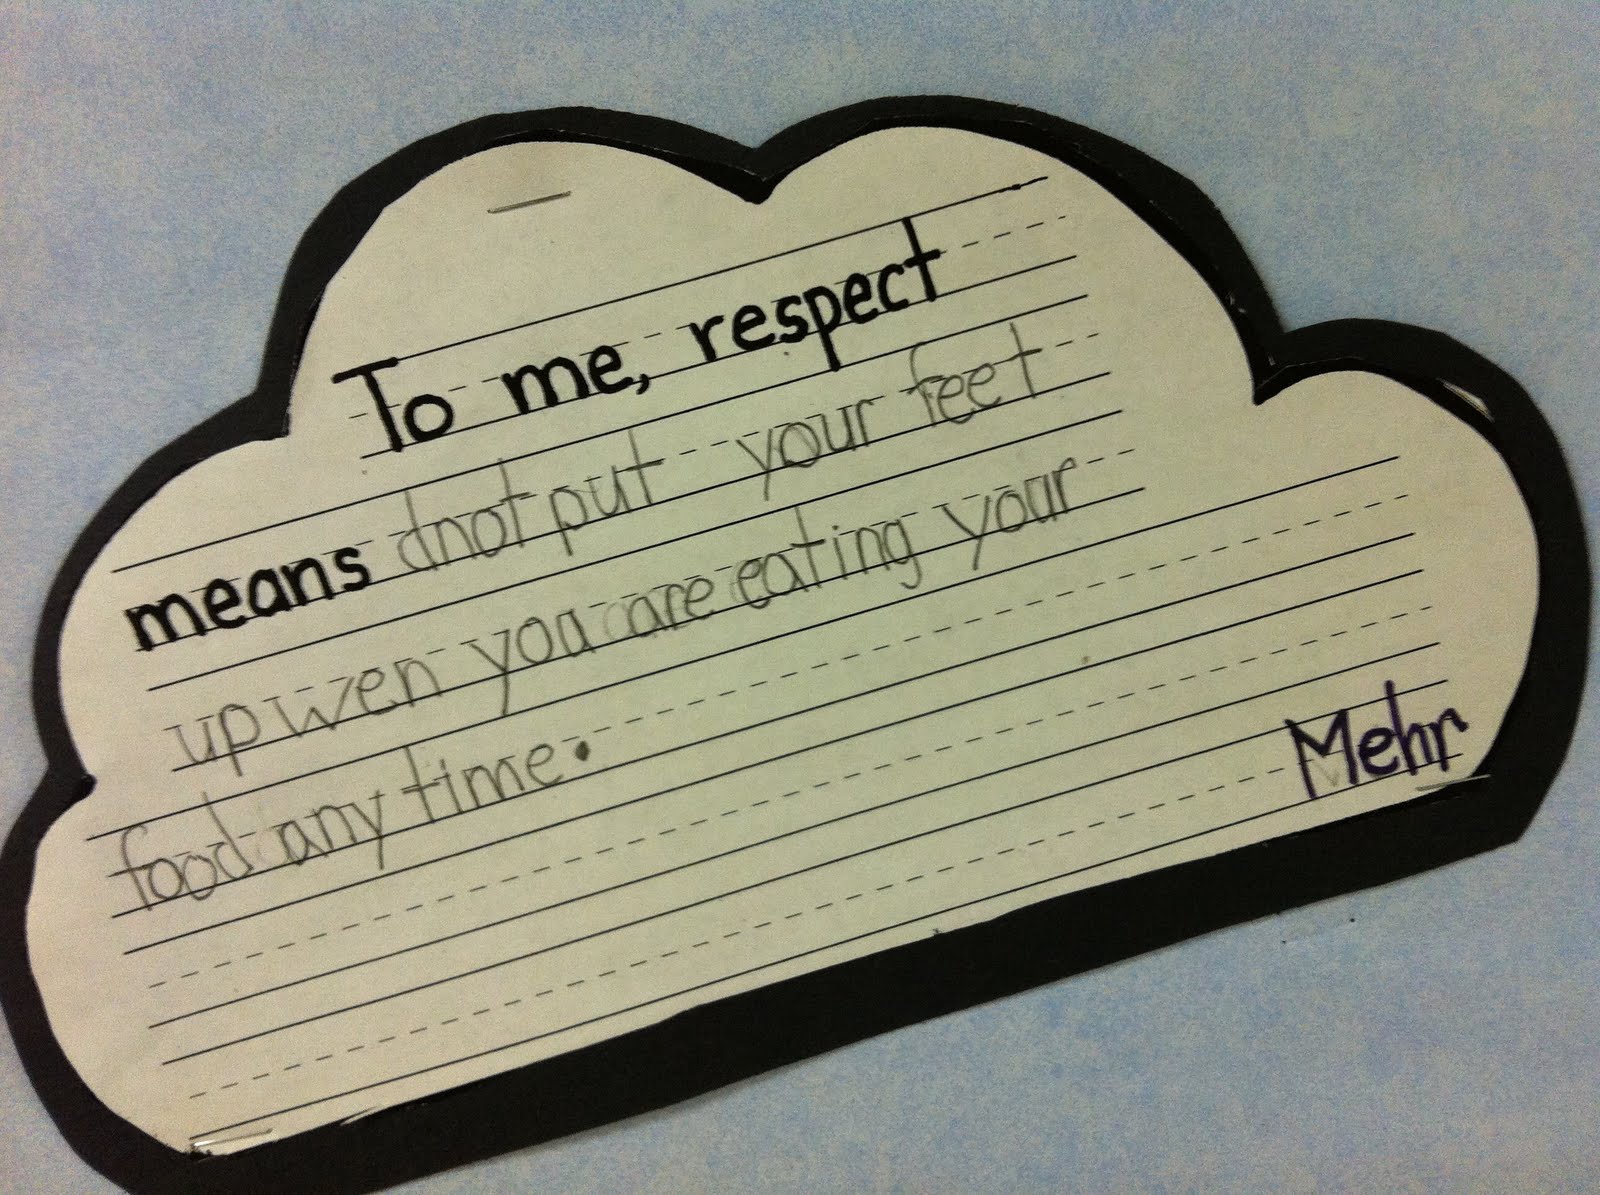 To me, respect
means dnot put your feet
up wen you are eating your
food any time.
Mehr